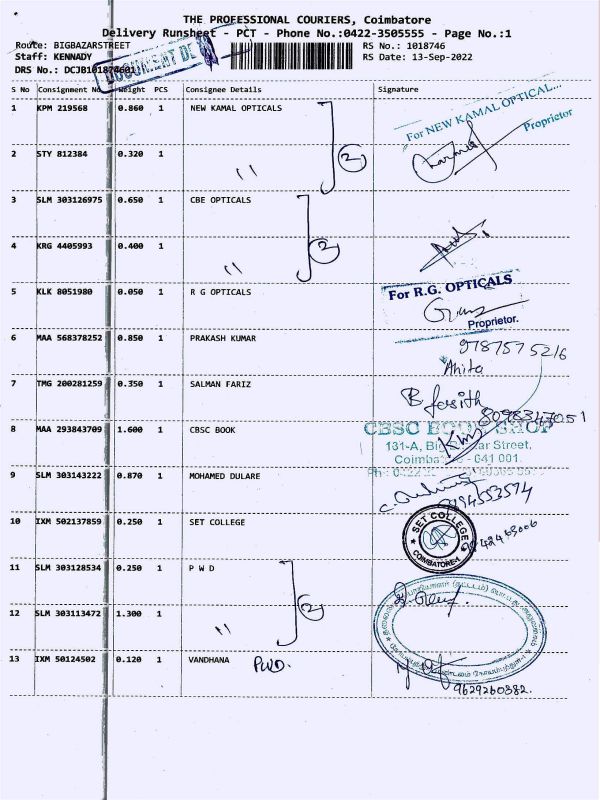 THE PROFESSIONAL COURIERS, Coimbatore
Delivery Runsheet - PCT - Phone No.:0422-3505555 - Page No.:1
Route: BIGBAZARSTREET RS No.: 1018746
Staff: KENNADY RS Date: 13-Sep-2022
DRS No.: DCJB101874601
DOCUMENT DE
S No Consignment No Weight PCS Consignee Details Signature
1 KPM 219568 0.860 1 NEW KAMAL OPTICALS
For NEW KAMAL OPTICAL...
Proprietor
2 STY 812384 0.320 1 " 2
3 SLM 303126975 0.650 1 CBE OPTICALS
4 KRG 4405993 0.400 1 " 2
5 KLK 8051980 0.050 1 R G OPTICALS
For R.G. OPTICALS
Proprietor.
6 MAA 568378252 0.850 1 PRAKASH KUMAR
9787575216
Anita
7 TMG 200281259 0.350 1 SALMAN FARIZ
8098347051
8 MAA 293843709 1.600 1 CBSC BOOK
CBSC BOOK SHOP
131-A, Big Street,
Coimba - 641 001.
9 SLM 303143222 0.870 1 MOHAMED DULARE
10 IXM 502137859 0.250 1 SET COLLEGE
SET COLLEGE
COIMBATORE-1
11 SLM 303128534 0.250 1 P W D
12 SLM 303113472 1.300 1 " 2
13 IXM 50124502 0.120 1 VANDHANA PWD.
9629260382.